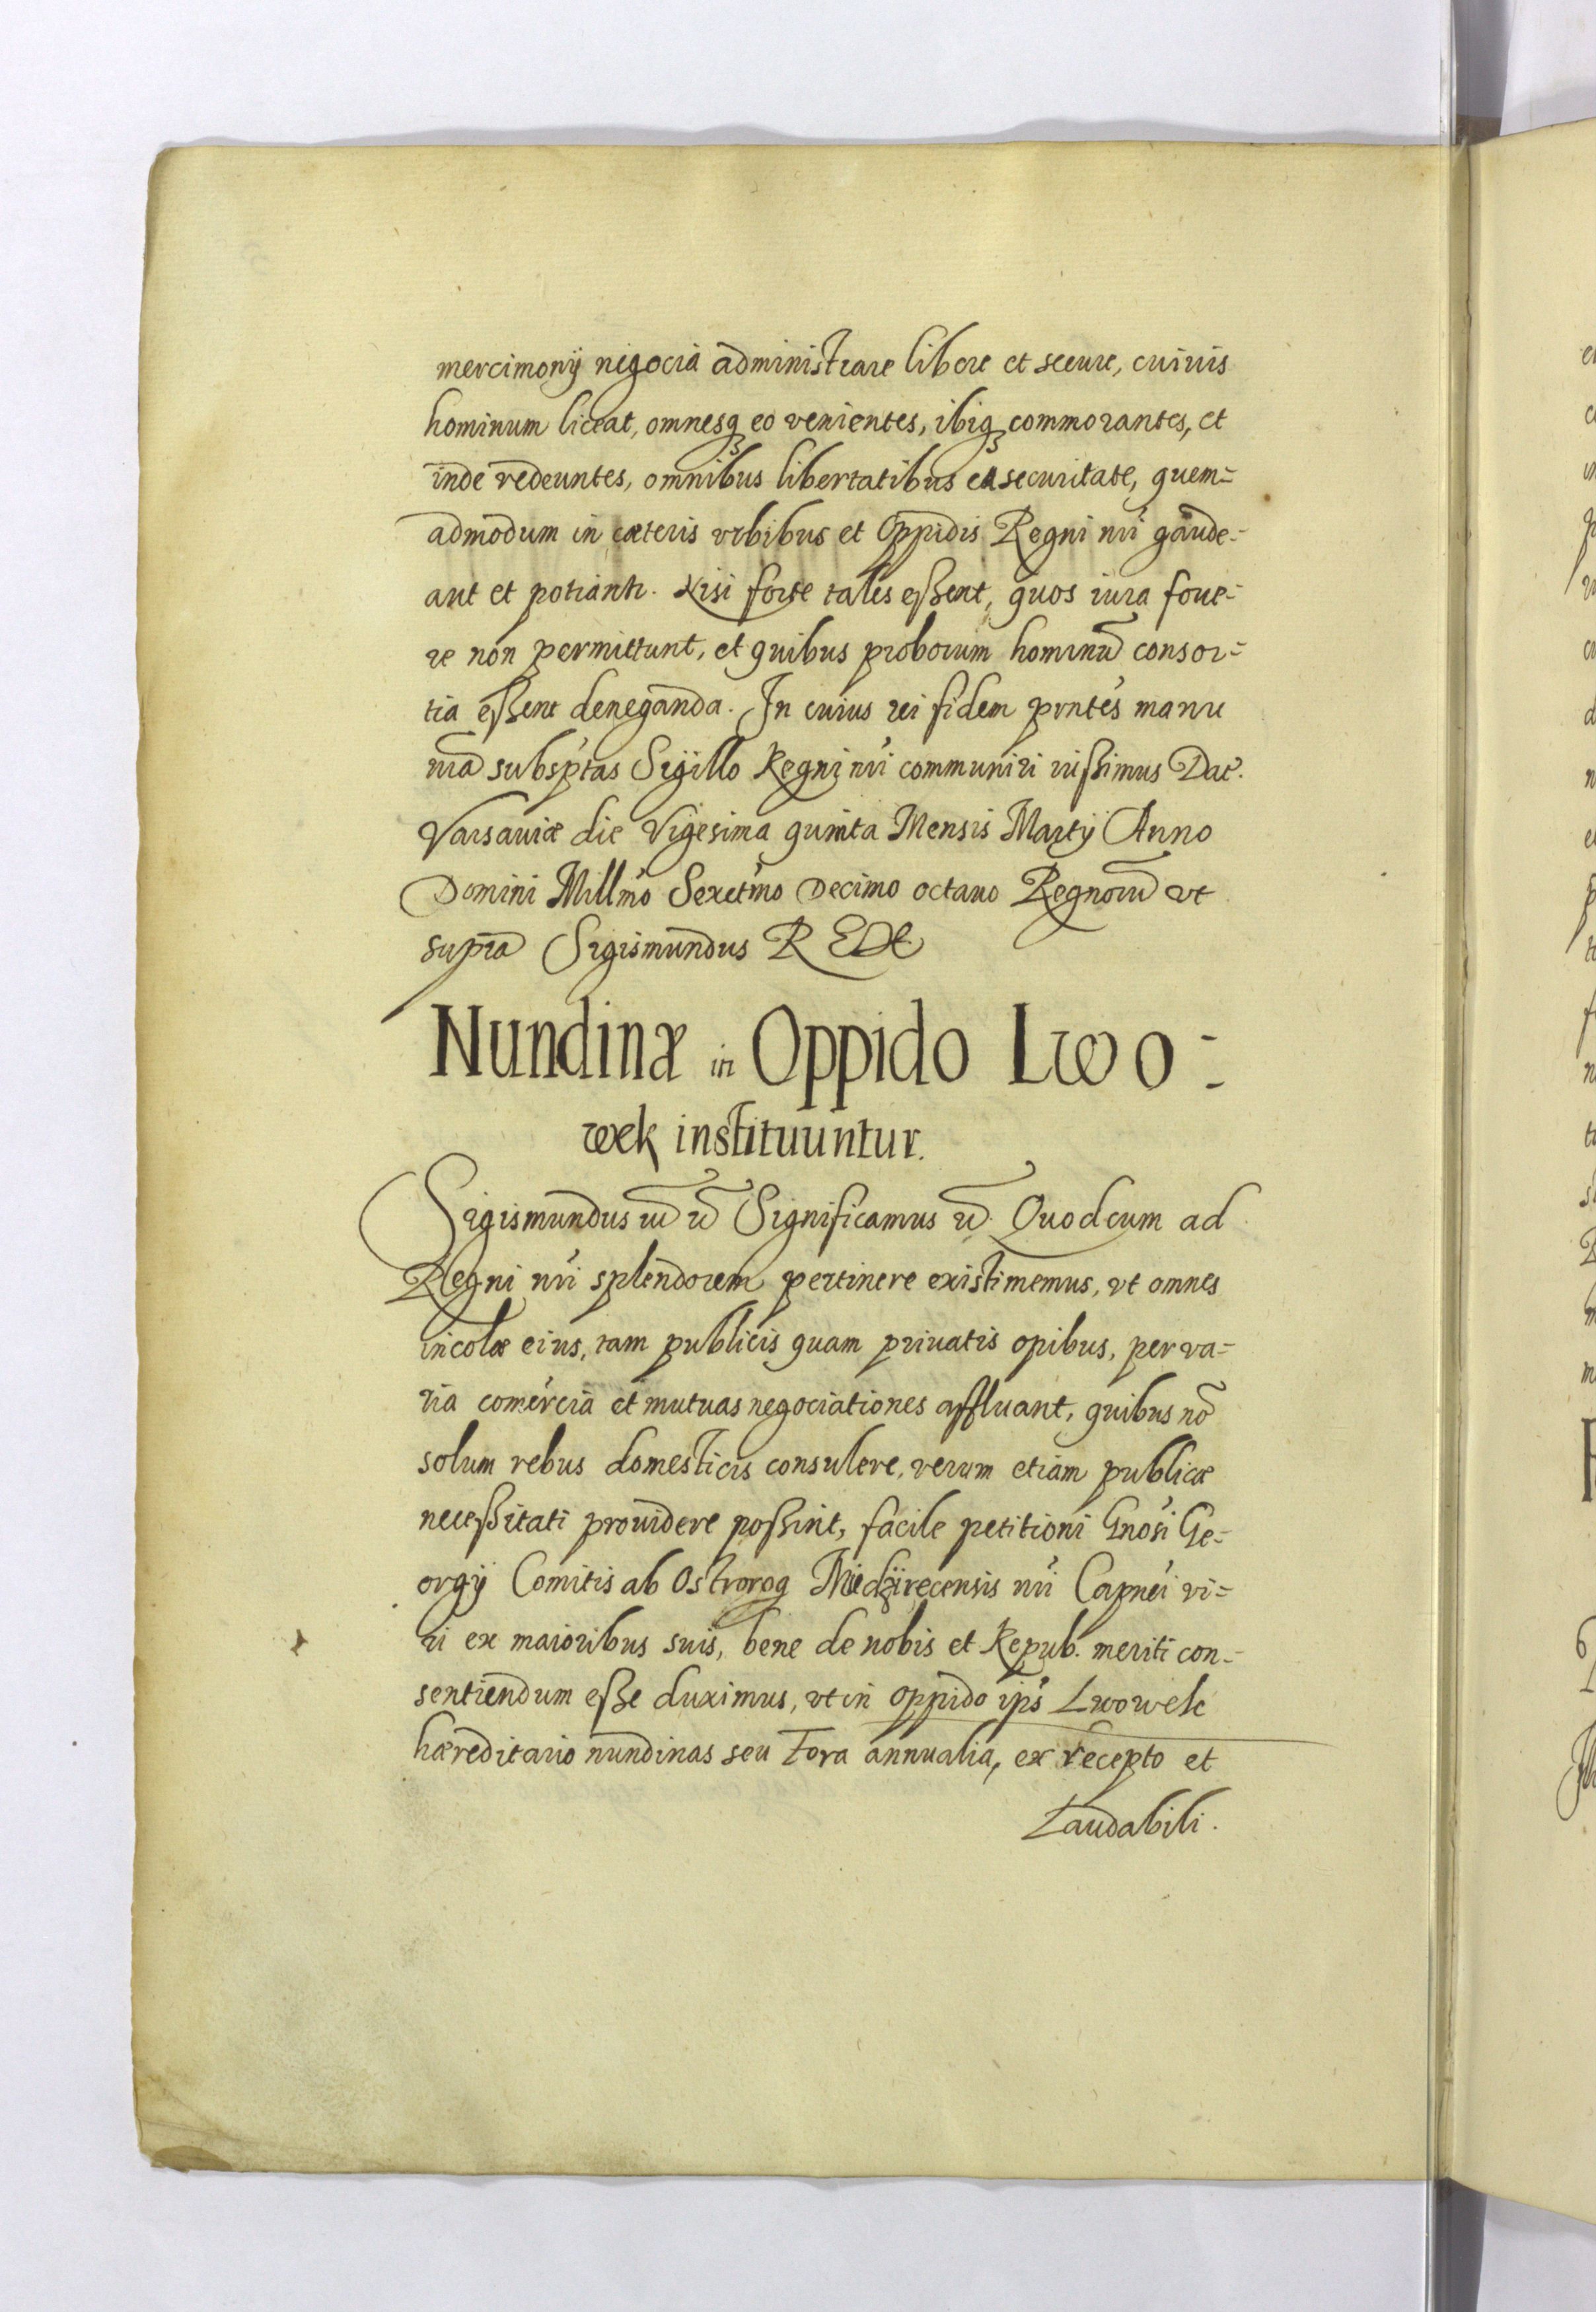 mercimonÿ negocia administrare libere et secure, cuiuis
hominum liceat, omnesq₃ eo venientes, ibiq₃ commorantes, et
inde redeuntes, omnibus libertatibus ea securitate, quem=
admodum in cæteris vrbibus et Oppidis Regni nri gaude=
ant et potiantr. Nisi forte tales eßent, quos iura foue=
re non permittunt, et quibus proborum hominũ consor=
tia eßent deneganda. In cuius rei fidem pntes manu
nra subsptas Sigillo Regni nri communiri iußimus Dat.
Varsauiæ die Vigesima quinta Mensis Martÿ Anno
Domini Millmo Sexctmo Decimo octauo Regnorũ vt
supra Sigismundus R
Nundinæ in Oppido Lwo=
wek instituuntur.
Sigismundus Significamus Quod cum ad
Regni nri splendorem pertinere existimemus, vt omnes
incolæ eius, tam publicis quam priuatis opibus, per va=
ria comercia et mutuas negociationes affluant, quibus nõ
solum rebus domesticis consulere, verum etiam publicæ
neceßitati prouidere poßint, facile petitioni Gnosi Ge=
orgÿ Comitis ab Ostrorog Miedzirecensis nri Capnei vi=
ri ex maioribus suis, bene de nobis et Repub. meriti con=
sentiendum eße duximus, vt in oppido ips Lwowek
hæreditario nundinas seu Fora annualia, ex recepto et
Laudabili.